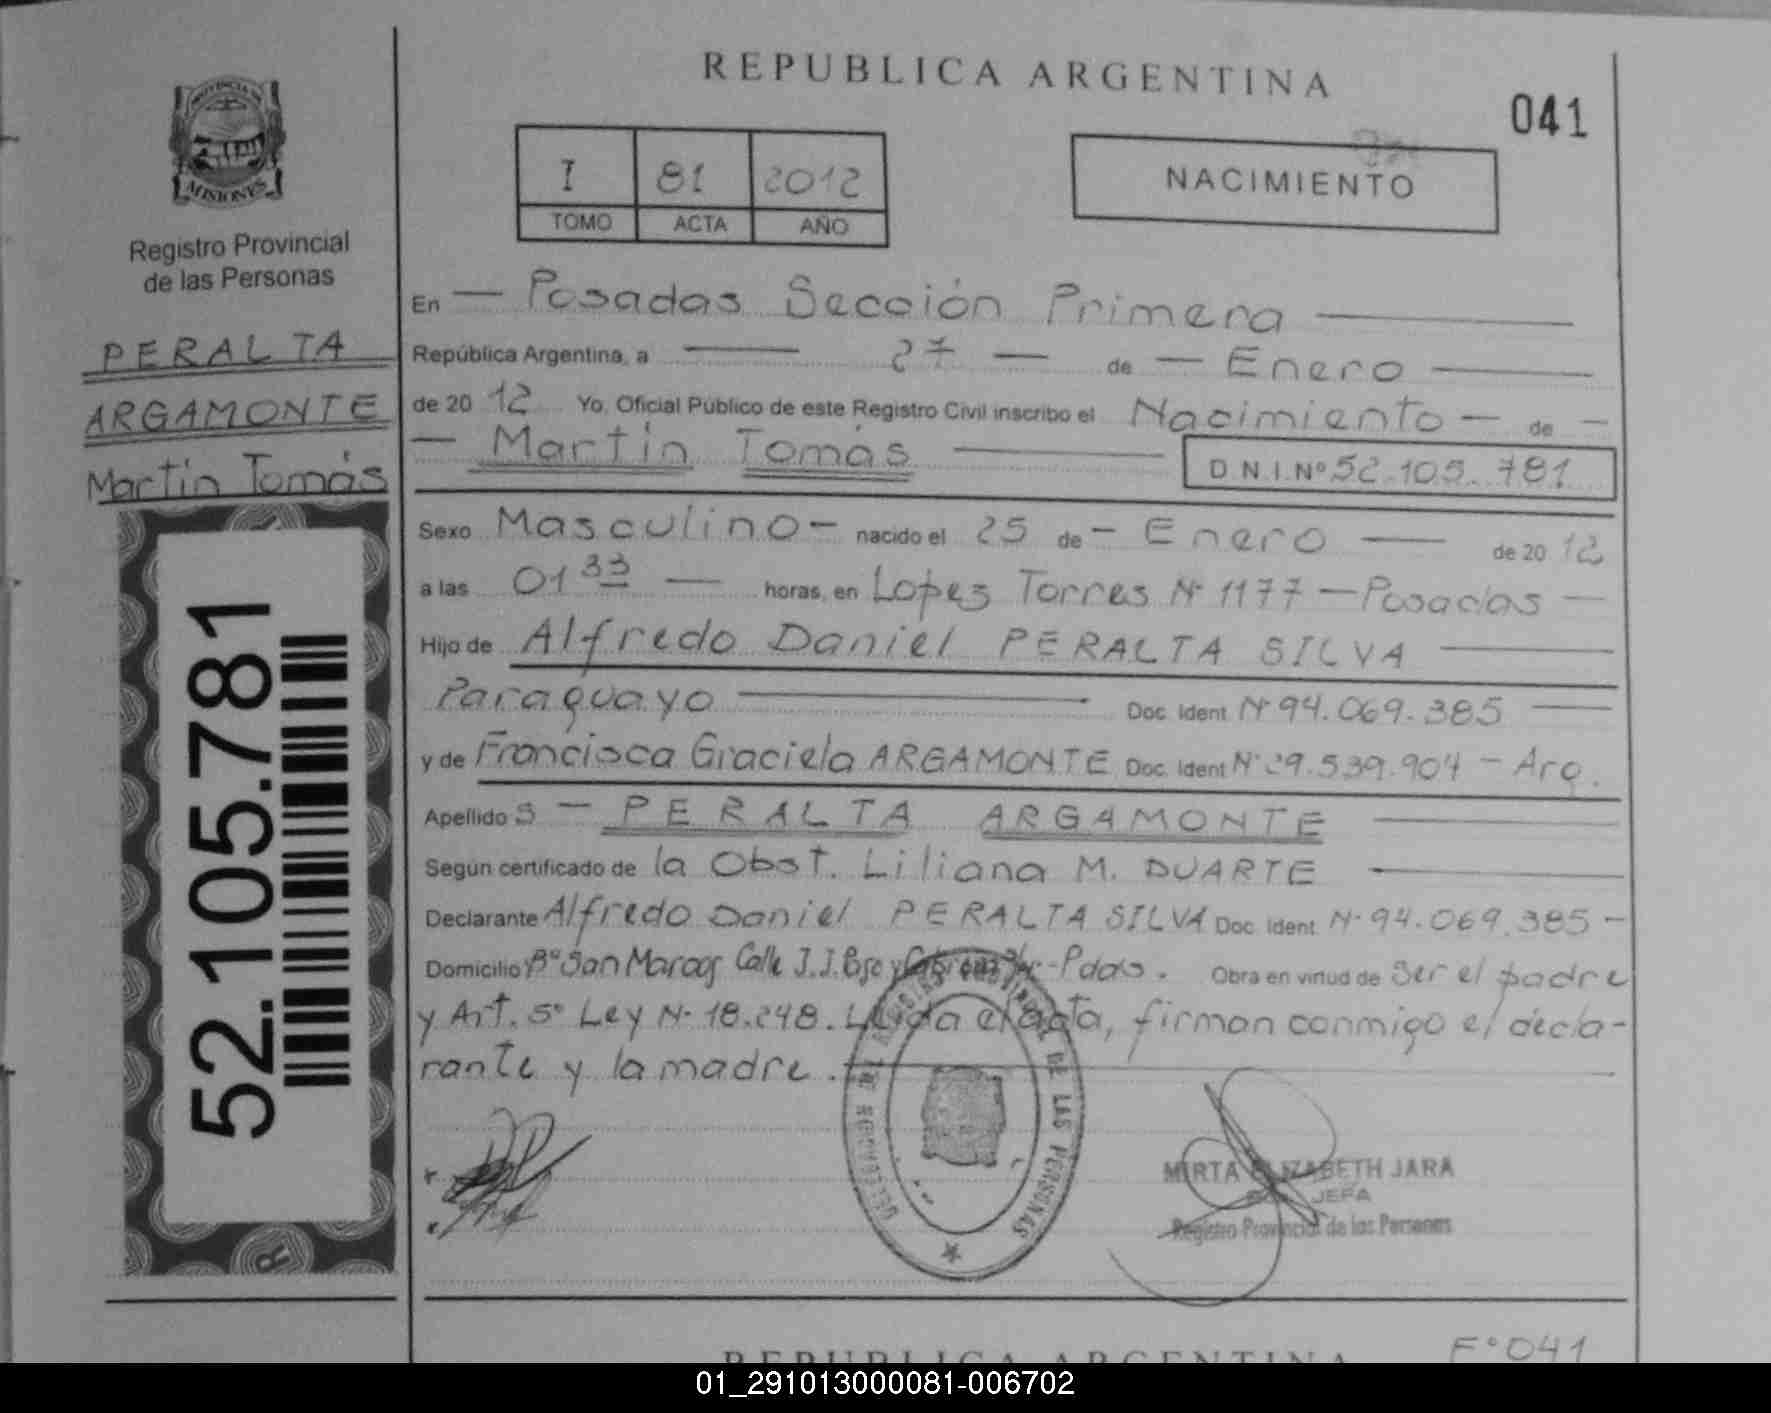 REPUBLICA ARGENTINA
041
PROVINCIA DE
MISIONES
Registro Provincial
de las Personas
PERALTA
ARGAMONTE
Martín Tomás
52.105.781
I 81 2012
TOMO ACTA AÑO
NACIMIENTO
En — Posadas Sección Primera —
República Argentina, a — 27 — de — Enero —
de 20 12 Yo, Oficial Público de este Registro Civil inscribo el Nacimiento — de —
— Martín Tomás — D.N.I. Nº 52.105.781
Sexo Masculino — nacido el 25 de — Enero — de 20 12
a las 01 33 — horas, en Lopez Torres Nº 1177 — Posadas —
Hijo de Alfredo Daniel PERALTA SILVA —
Paraguayo — Doc. Ident. Nº 94.069.385 —
y de Francisca Graciela ARGAMONTE Doc. Ident. Nº 29.539.904 — Arg.
Apellido s — PERALTA ARGAMONTE —
Según certificado de la Obst. Liliana M. DUARTE —
Declarante Alfredo Daniel PERALTA SILVA Doc. Ident. Nº 94.069.385 —
Domicilio Bº San Marcos Calle J.J. Paso y - Pdas. Obra en virtud de ser el padre
y Art. 5º Ley Nº 18.248. Leída el acta, firman conmigo el decla-
rante y la madre. —
REGISTRO PROVINCIAL DE LAS PERSONAS
MIRTA ELIZABETH JARA
JEFA
Registro Provincial de las Personas
REPUBLICA ARGENTINA
Fº 041
01_291013000081-006702